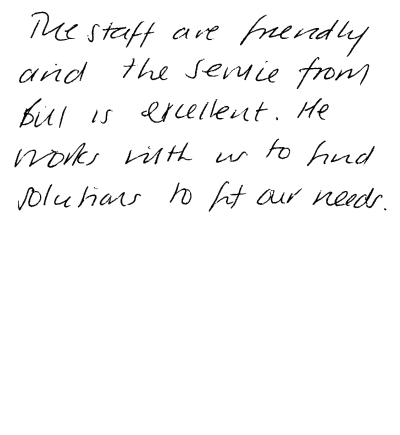 The staff are friendly
and the service from
Bill is excellent. He
works with us to find
solutions to fit our needs.